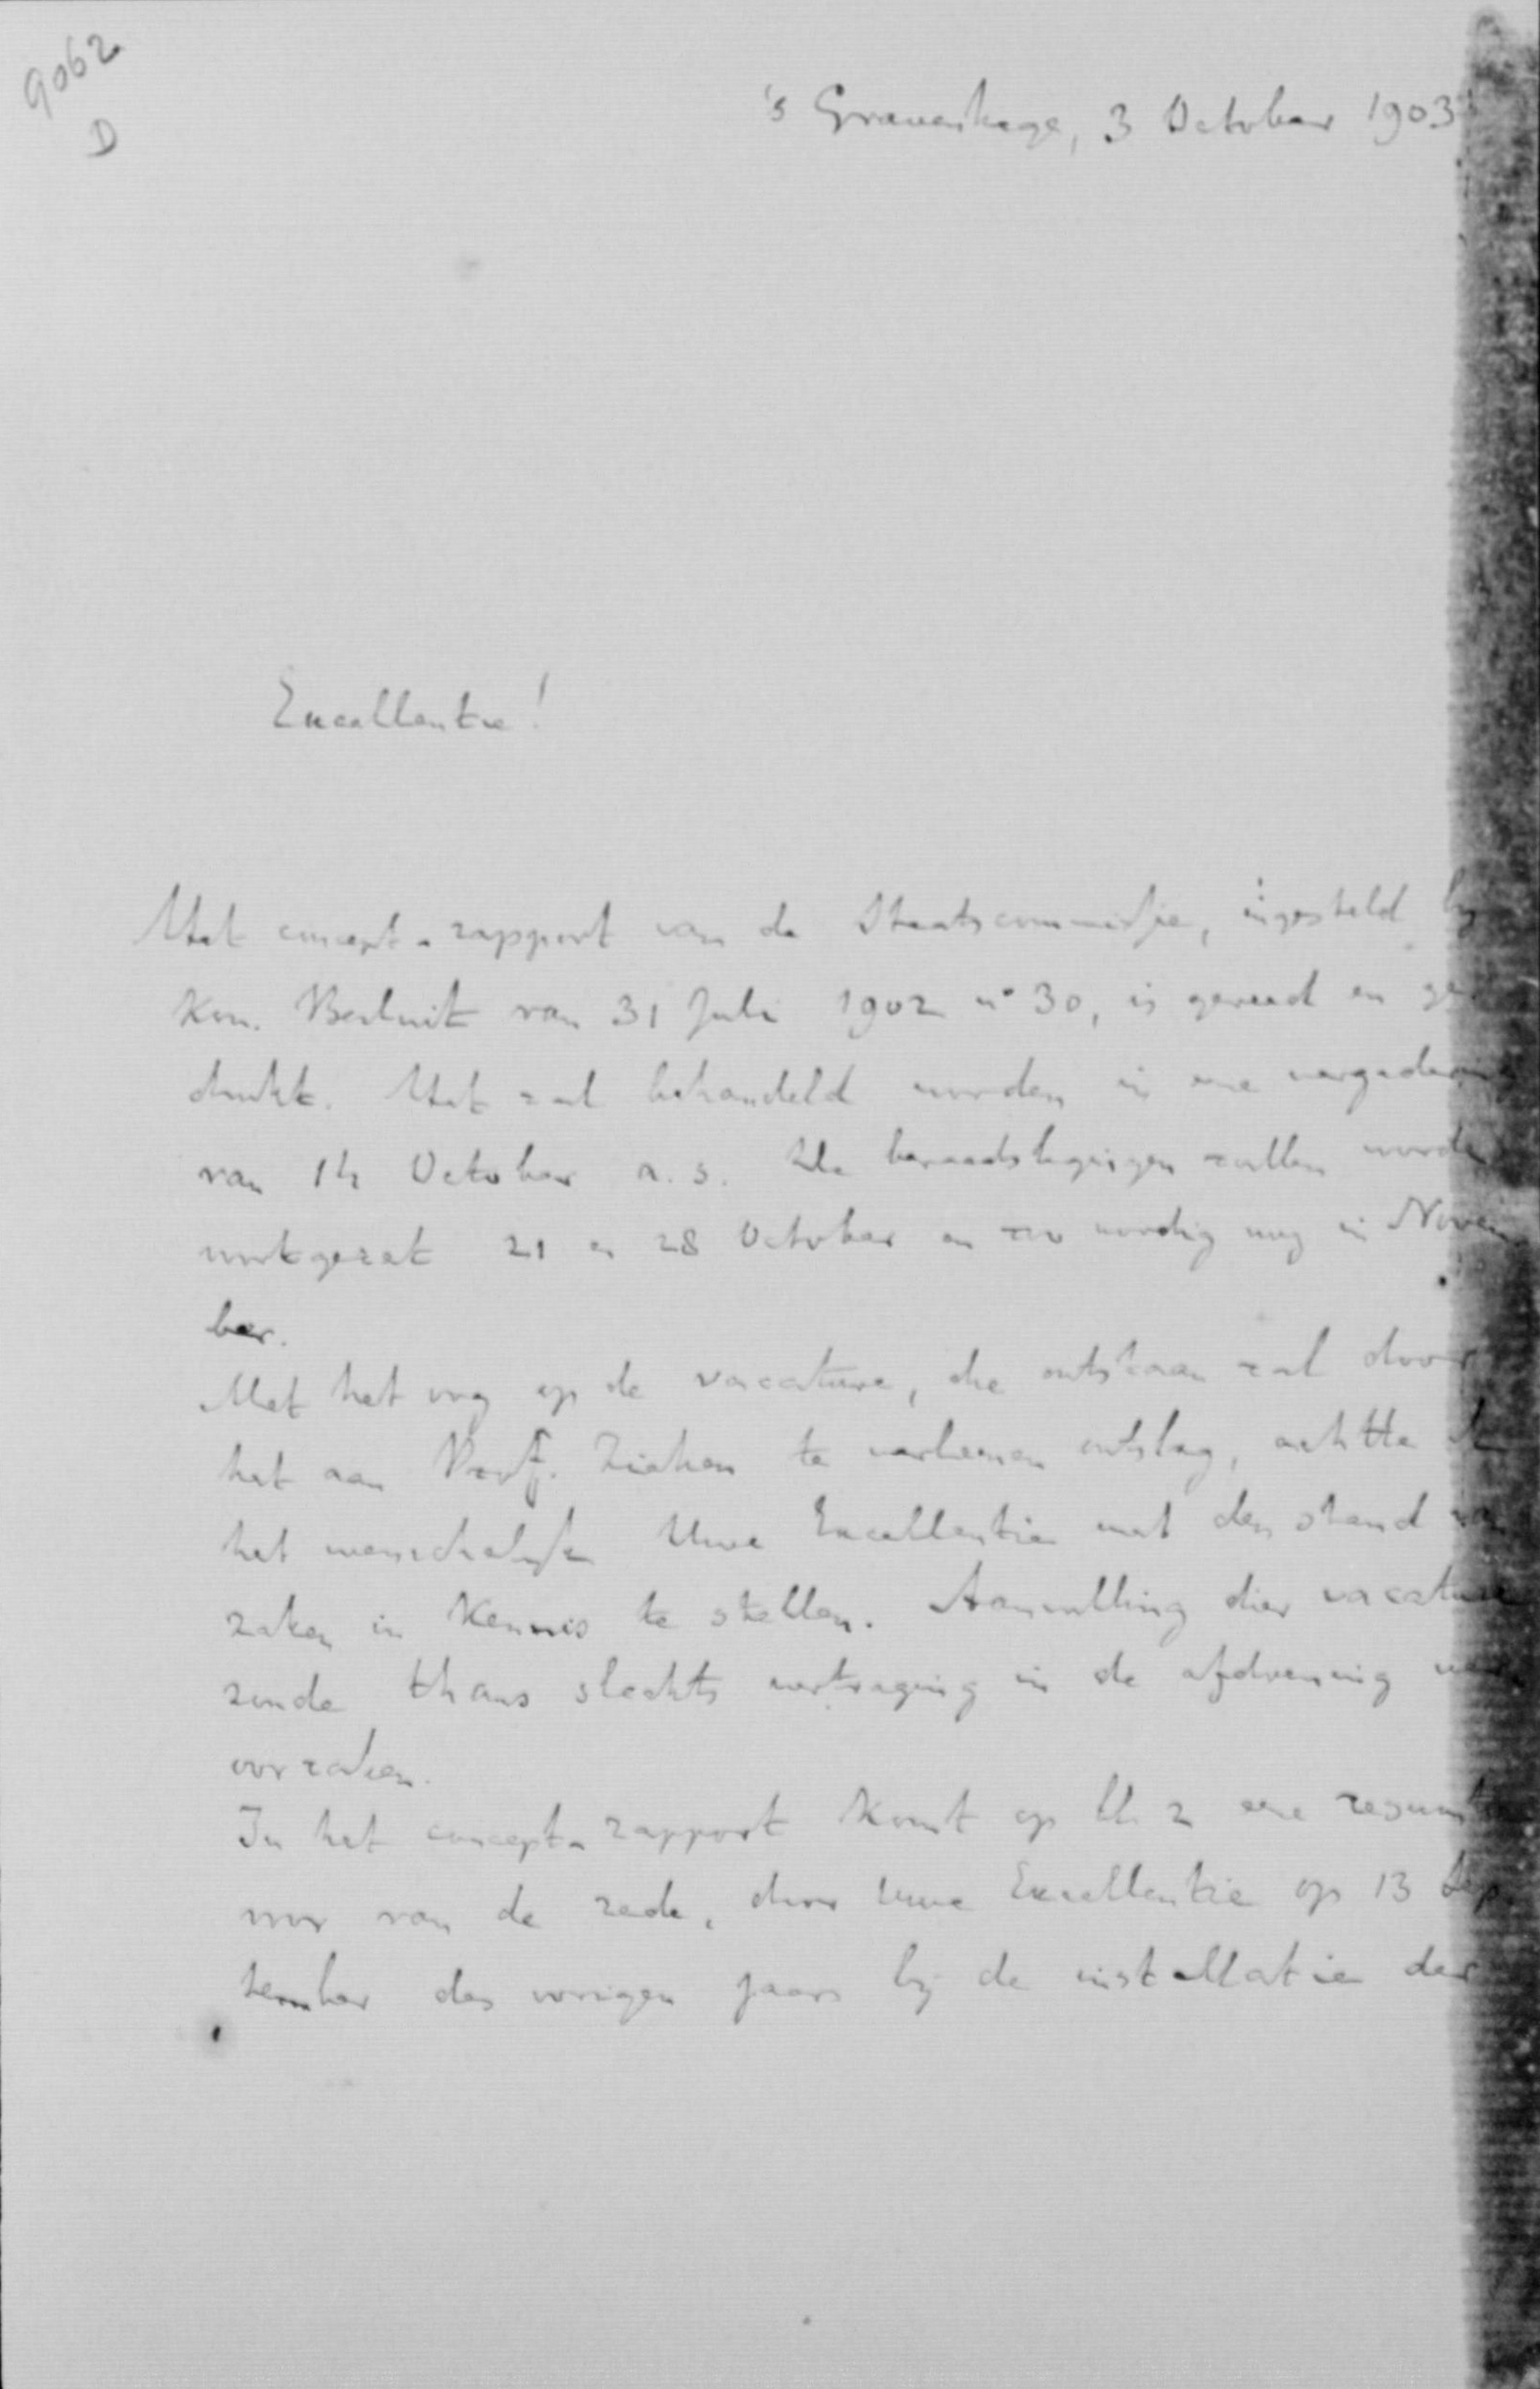 9062
D
's Gravenhage, 3 October 1903
Excellentie!
Het concept-rapport van de Staatscommissie, ingesteld bij
Kon. Besluit van 31 Juli 1902 n° 30, is gereed en ge-
drukt. Het zal behandeld worden in eene vergadering
van 14 October a.s. De beraadslagingen zullen worden
voortgezet 21 en 28 October en zoo noodig nog in Novem
ber.
Met het oog op de vacature, die ontstaan zal door
het aan Prof. Ziehen te verleenen ontslag, achtte ik
het wenschelijk Uwe Excellentie met den stand van
zaken in kennis te stellen. Aanvulling dier vacature
zoude thans slechts vertraging in de afdoening ver
oorzaken.
In het concept-rapport komt op bl. 2 eene
voor van de rede, door Uwe Excellentie op 13 Sep
tember des vorigen jaars bij de installatie der